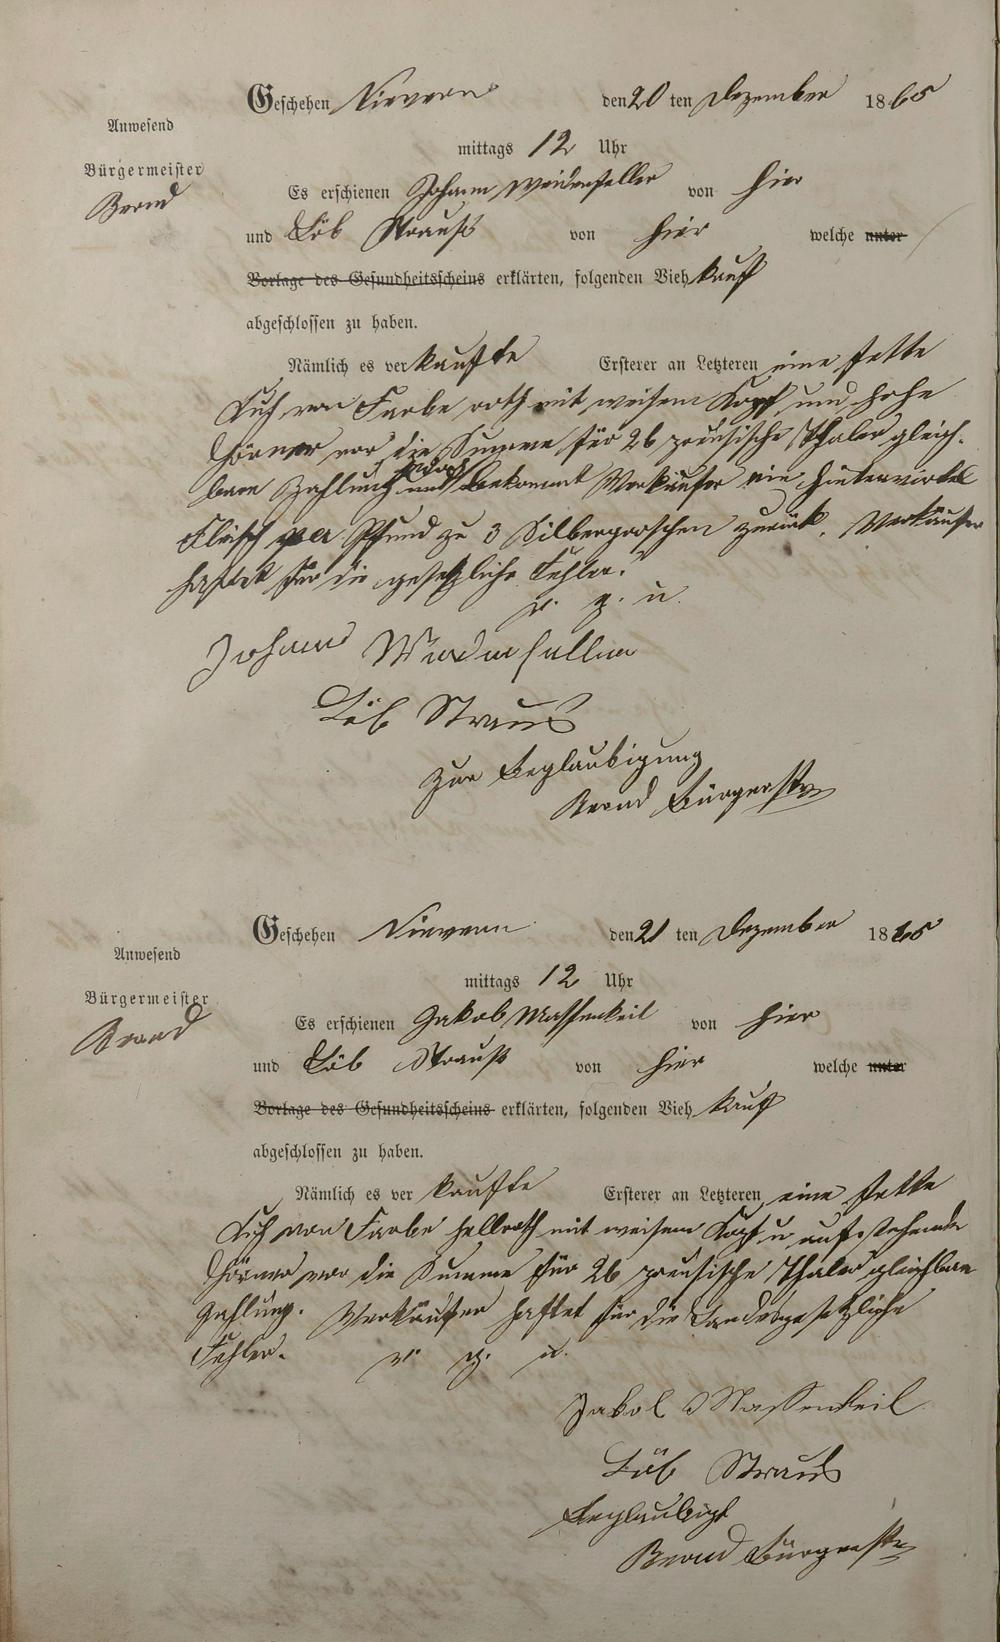 Geschehen Nievern den 20 ten Dezember 1865
Anwesend
mittags 12 Uhr
Bürgermeister
Bernd
Es erschienen Johann Weidenfeller von hier
und Löb Strauß von hier welche unter
Vorlage des Gesundheitsscheins erklärten, folgenden Viehkauf
abgeschlossen zu haben.
Nämlich es verkaufte Ersterer an Letzteren eine fette
Kuh von Farbe roth mit weisem Kopf und hohe
Hörner vor die Summe für 26 preusische Thaler gleich-
bare Zahlung und jedoch bekommt Verkäufer ein Hinterviertel
Fleisch per Pfund zu 3 Silbergroschen zurück. Verkäufer
haftet für die gesetzliche Fehler.
v. g. u.
Johann Weidenfeller
Löb Straus
Zur Beglaubigung
Bernd Bürgermstr
Geschehen Nievern den 21 ten Dezember 1865
Anwesend
mittags 12 Uhr
Bürgermeister
Bernd
Es erschienen Jakob Massenkeil von hier
und Löb Strauß von hier welche unter
Vorlage des Gesundheitsscheins erklärten, folgenden Vieh kauf
abgeschlossen zu haben.
Nämlich es ver kaufte Ersterer an Letzteren eine fette
Kuh von Farbe hellroth mit weisem Kopf u aufstehende
Hörner vor die Summe für 26 preusische Thaler gleichbare
Zahlung. Verkäufer haftet für die Landesgesetzliche
Fehler. v. g. u.
Jakob Massenkeil
Löb Straus
Beglaubigt
Bernd Bürgermstr